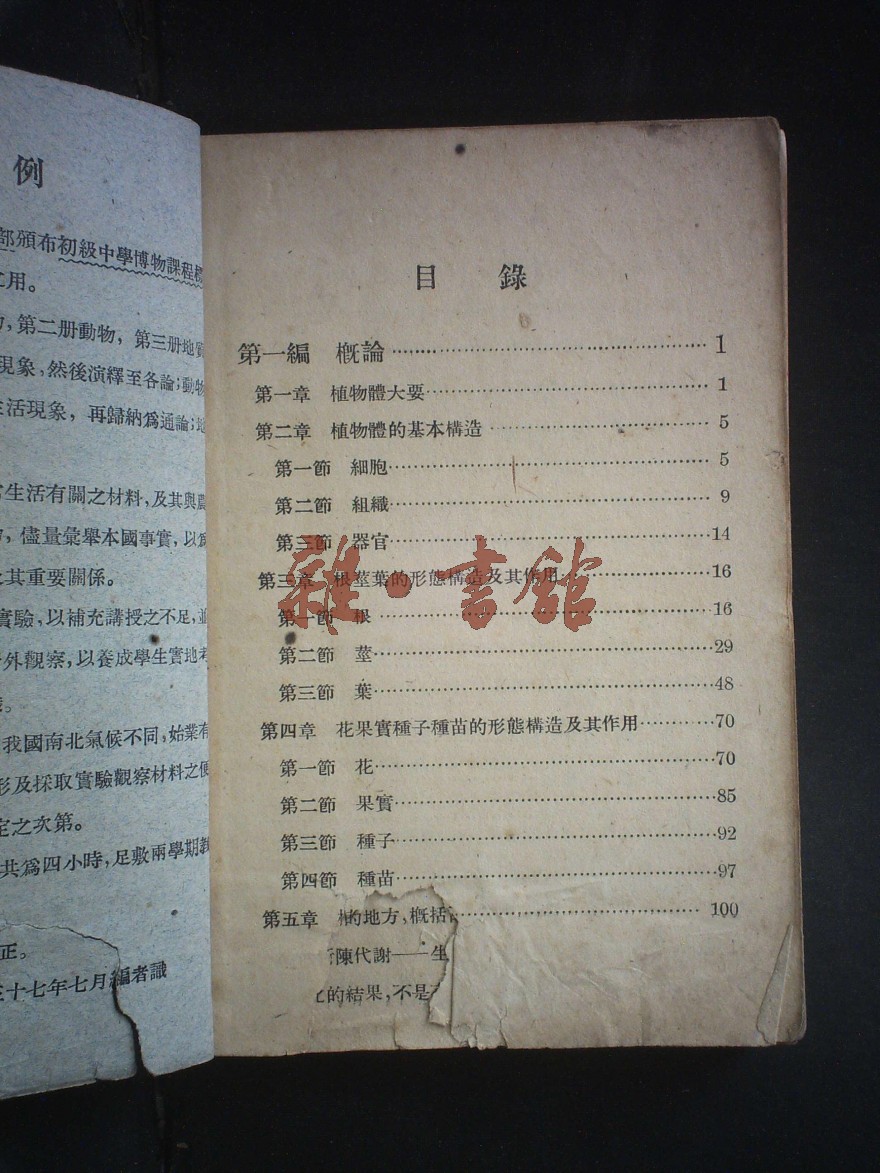 例
部頒布初級中學博物課程
用。
第二册動物，第三册地
現象，然後演繹至各論；動
活現象，再歸納爲通論；
生活有關之材料，及其與
儘量彙舉本國事實，以
其重要關係。
實驗，以補充講授之不足，並
外觀察，以養成學生實地
我國南北氣候不同，始業有
形及採取實驗觀察材料之便
定之次第。
共爲四小時，足敷兩學期
正。
十七年七月編者識
目　錄
第一編　概論……1
第一章　植物體大要……1
第二章　植物體的基本構造……5
第一節　細胞……5
第二節　組織……9
第三節　器官……14
第三章　根莖葉的形態構造及其作用……16
第一節　根……16
第二節　莖……29
第三節　葉……48
第四章　花果實種子種苗的形態構造及其作用……70
第一節　花……70
第二節　果實……85
第三節　種子……92
第四節　種苗……97
第五章　的地方，概括……100
陳代謝——生
的結果，不是
雜·書館